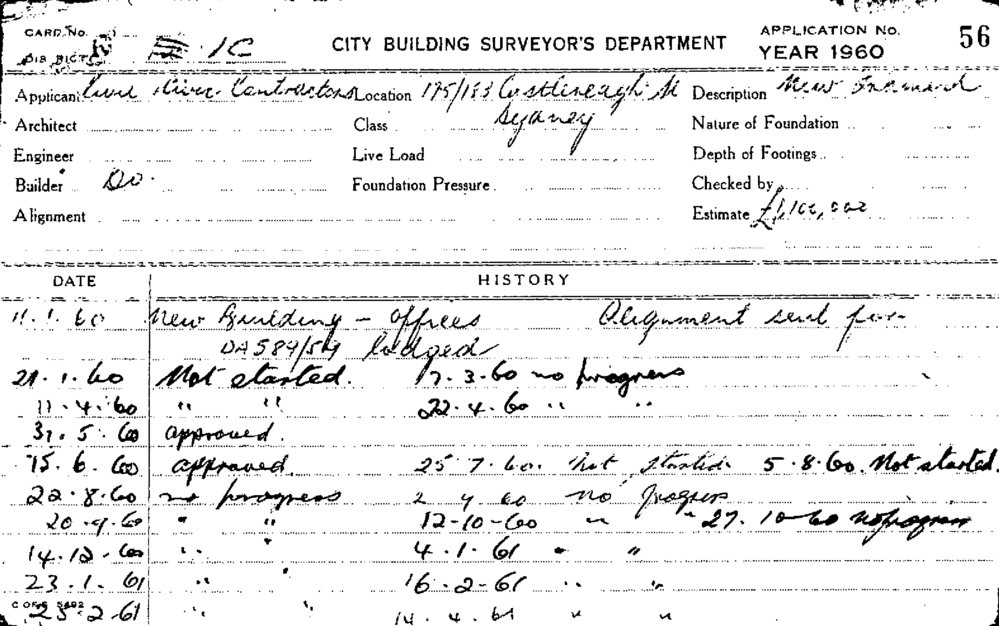 CARD No.
DISTRICT 1C CITY BUILDING SURVEYOR'S DEPARTMENT APPLICATION No. 56
YEAR 1960
Applicant Civil & Civic Contractors Location 175/183 Castlereagh St Description New
Architect Class Sydney Nature of Foundation
Engineer Live Load Depth of Footings
Builder Do. Foundation Pressure Checked by
Alignment Estimate £1,100,000
DATE HISTORY
11.1.60 New Building - Offices Alignment sent for
DA 589/59 lodged
21.1.60 Not started. 17.3.60 no progress
11.4.60 " " 22.4.60 " "
31.5.60 approved.
15.6.60 approved. 25 7.60. Not started 5.8.60. Not started.
22.8.60 no progress 2 9 60 no progress
20.9.60 " " 12-10-60 " " 27.10-60 no progress
14.12.60 " " 4.1.61 " "
23.1.61 " " 16-2-61 " "
23.2-61 " " 14.4.61 " "